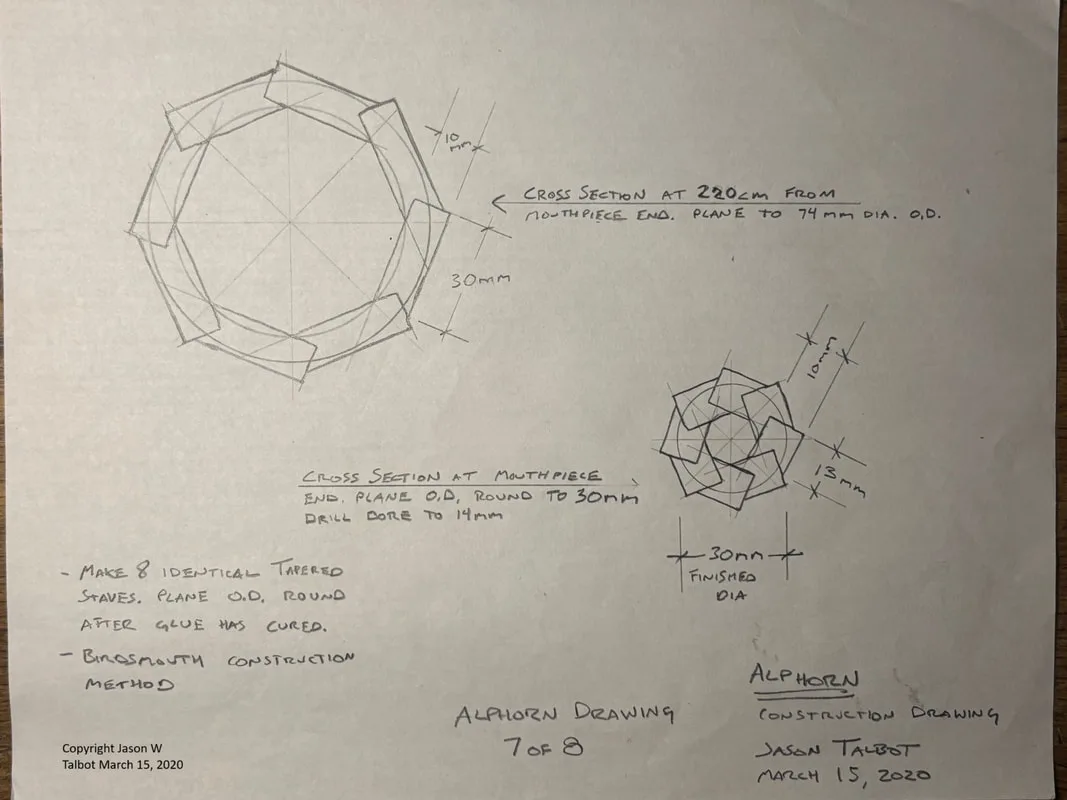 10
mm
CROSS SECTION AT 220cm FROM
MOUTHPIECE END. PLANE TO 74mm DIA. O.D.
30mm
10mm
13mm
CROSS SECTION AT MOUTHPIECE
END. PLANE O.D, ROUND TO 30mm
DRILL BORE TO 14mm
30mm
FINISHED
DIA
- MAKE 8 IDENTICAL TAPERED
STAVES. PLANE O.D. ROUND
AFTER GLUE HAS CURED.
- BIRDSMOUTH CONSTRUCTION
METHOD
ALPHORN DRAWING
7 OF 8
ALPHORN
CONSTRUCTION DRAWING
JASON TALBOT
MARCH 15, 2020
Copyright Jason W
Talbot March 15, 2020